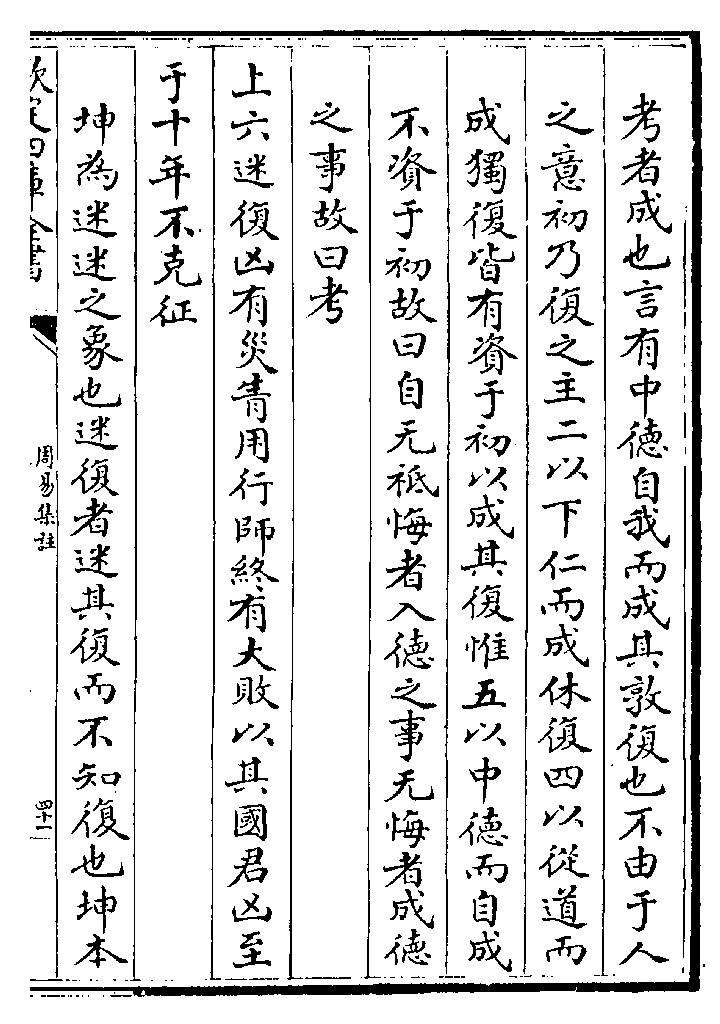 考者成也言有中德自我而成其敦復也不由于人
之意初乃復之主二以下仁而成休復四以從道而
成獨復皆有資于初以成其復惟五以中德而自成
不資于初故曰自无祗悔者入德之事无悔者成德
之事故曰考
上六迷復凶有災眚用行師終有大敗以其國君凶至
于十年不克征
坤為迷迷之象也迷復者迷其復而不知復也坤本
欽定四庫全書
周易集註
四十一